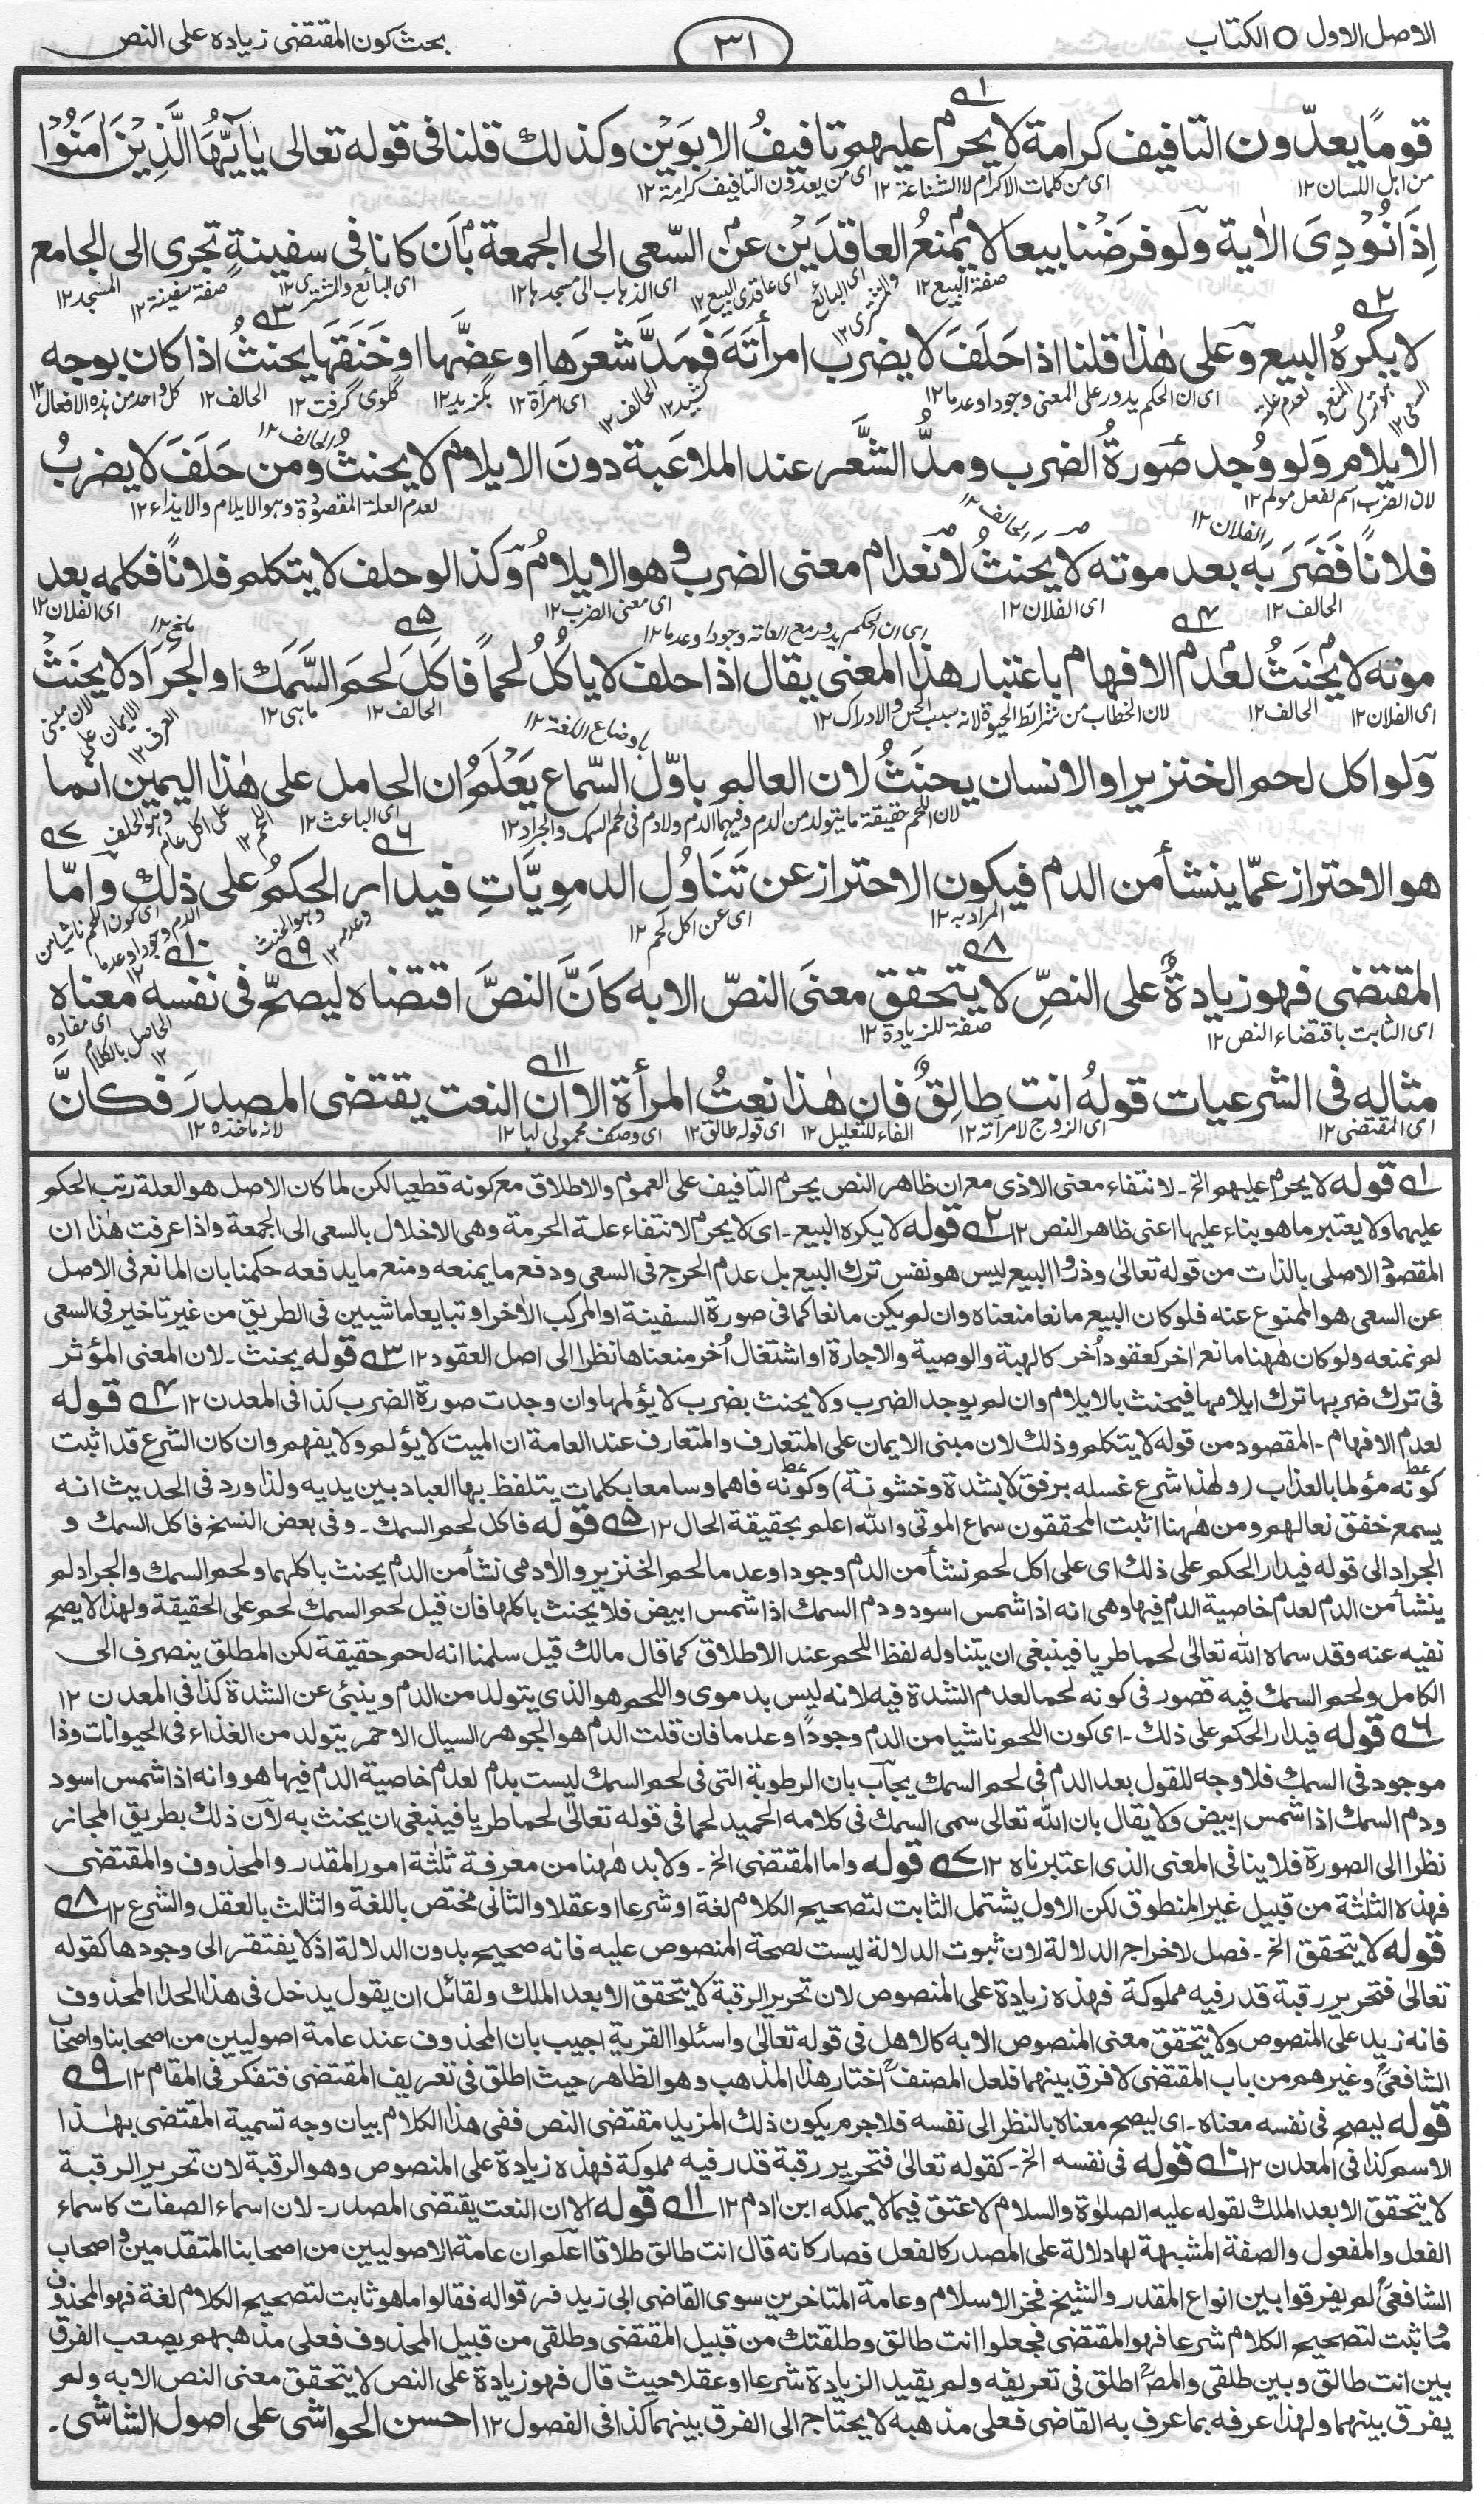 الاصل الاول ○ الكتاب
٣١
بحث كون المقتضى زيادة على النص
قومًا يعدّون التافيف كرامة لا يحرم عليهم تافيفُ الابوَيْن وكذلك قلنا فى قوله تعالى يٰاَيُّهَا الَّذِيْنَ اٰمَنُوْا
من اهل اللسان ١٢ اى من كلمات الاكرام لا الشناعة ١٢ اى من يعدون التافيف كرامة ١٢
اِذَا نُوْدِىَ الاٰية ولو فرَضْنا بيعا لا يمنعُ العاقدَيْن عن السّعى الى الجمعة بأن كانا فى سفينةٍ تجرى الى الجامع
صفة البيع ١٢ اى عاقدى البيع ١٢ اى الذهاب الى مسجدها ١٢ اى البائع والمشترى ١٢ صفة سفينة ١٢ المسجد ١٢
لا يكرهُ البيع وعلى هٰذا قلنا اذا حلَفَ لا يضرب امرأتَهَ فَمَدَّ شعرَها او عضَّها او خَنَقَها يحنثُ اذا كان بوجه
اى ان الحكم يدور على المعنى وجودا وعدما ١٢ كشيد ١٢ الحالف ١٢ اى امرأة ١٢ بگزيد ١٢ گلوى گرفت ١٢ الحالف ١٢ كل واحد من هذه الافعال ١٢
الايلام ولو وُجد صورةُ الضرب ومدُّ الشَّعر عند الملاعَبة دونَ الايلام لا يحنثُ ومن حلَفَ لا يضربُ
لان الضرب اسم لفعل مولم ١٢ الحالف ١٢ لعدم العلة المقصودة وهو الايلام والايذاء ١٢
فلانًا فضَرَبَه بعد موته لا يحنثُ لانعدام معنى الضرب وهو الايلامُ وكذا لو حلف لا يتكلم فلانًا فكلمه بعد
الحالف ١٢ اى الفلان ١٢ اى معنى الضرب ١٢ اى الفلان ١٢
موته لا يحنَثُ لعدم الافهام باعتبار هٰذا المعنى يقال اذا حلف لا ياكُلُ لحماً فاكَلَ لحمَ السَّمَك او الجرَاد لا يحنَثْ
اى الفلان ١٢ الحالف ١٢ لان الخطاب من شرائط الحيوة لانه سبب الحس والادراك ١٢ الحالف ١٢ ماهى ١٢
ولو اكل لحم الخنزير او الانسان يحنَثُ لان العالم باوّل السّماع يَعْلَمُ ان الحامل على هٰذا اليمين انما
لان اللحم حقيقة ما يتولد من الدم وفيهما الدم ولا دم فى لحم السمك والجراد ١٢ اى الباعث ١٢
هو الاحتراز عمّا ينشأ من الدم فيكون الاحتراز عن تَنَاوُلِ الدمِويَّاتِ فيدار الحكمُ على ذلك وامّا
المراد به ١٢ اى عن اكل لحم ١٢
المقتضى فهو زيادةٌ على النصِّ لا يتحقق معنَى النصّ الا به كَاَنَّ النصَّ اقتضاه ليصحّ فى نفسه معناه
اى الثابت باقتضاء النص ١٢ صفة للزيادة ١٢
مثاله فى الشرعيات قولُه انت طالِقٌ فان هٰذا نعتُ المرأة الا ان النعت يقتضى المصدرَ فكانَّ
اى المقتضى ١٢ اى الزوج لامرأته ١٢ الفاء للتعليل ١٢ اى قوله طالق ١٢ لانه ماخذه ١٢
١ قوله لا يحرم عليهم الخ۔ لانتفاء معنى الاذى مع ان ظاهر النص يحرم التافيف على العموم والاطلاق مع كونه قطعيا لكن لما كان الاصل هو العلة رتب الحكم
عليهما ولا يعتبر ما هو بناء عليها اعنى ظاهر النص ١٢ ٢ قوله لا يكره البيع۔ اى لا يحرم لانتفاء علة الحرمة وهى الاخلال بالسعى الى الجمعة واذا عرفت هٰذا ان
المقصود الاصلى بالذات من قوله تعالىٰ وذروا البيع ليس هو نفس ترك البيع بل عدم الحرج فى السعى ودفع ما يمنعه ومنع ما يدفعه حكمنا بان المانع فى الاصل
عن السعى هو الممنوع عنه فلو كان البيع مانعا منعناه وان لم يكن مانعا كما فى صورة السفينة او المركب الاٰخر او تبايعا ماشيين فى الطريق من غير تاخير فى السعى
لم نمنعه ولو كان هٰهنا مانع اٰخر كعقود اُخر كالهبة والوصية والاجارة او اشتغال اُخر منعناها نظرا الى اصل العقود ١٢ ٣ قوله يحنث۔ لان المعنى المؤثر
فى ترك ضربها ترك ايلامها فيحنث بالايلام وان لم يوجد الضرب ولا يحنث بضرب لا يؤلمها وان وجدت صورة الضرب كذا فى المعدن ١٢ ٤ قوله
لعدم الافهام۔ المقصود من قوله لا يتكلم وذلك لان مبنى الايمان على المتعارف والمتعارف عند العامة ان الميت لا يؤلم ولا يفهم وان كان الشرع قد اثبت
كونه مؤلما بالعذاب (ولهذا شرع غسله برفق لا بشدة وخشونة) وكونه فاهما وسامعا بكلمات يتلفظ بها العباد بين يديه ولذا ورد فى الحديث انه
يسمع خفق نعالهم ومن هٰهنا اثبت المحققون سماع الموتى والله اعلم بحقيقة الحال ١٢ ٥ قوله فاكل لحم السمك۔ وفى بعض النسخ فاكل السمك و
الجراد الى قوله فيدار الحكم على ذلك اى على اكل لحم نشأ من الدم وجودا وعدما لحم الخنزير والاٰدمى نشأ من الدم يحنث باكلهما ولحم السمك والجراد لم
ينشأ من الدم لعدم خاصية الدم فيها وهى انه اذا شمس اسود ودم السمك اذا شمس ابيض فلا يحنث باكلها فان قيل لحم السمك لحم على الحقيقة ولهذا لا يصح
نفيه عنه وقد سماه الله تعالىٰ لحما طريا فينبغى ان يتناوله لفظ اللحم عند الاطلاق كما قال مالك قيل سلمنا انه لحم حقيقة لكن المطلق ينصرف الى
الكامل ولحم السمك فيه قصور فى كونه لحما لعدم الشدة فيه لانه ليس بدموى واللحم هو الذى يتولد من الدم وينبئ عن الشدة كذا فى المعدن ١٢
٦ قوله فيدار الحكم على ذلك۔ اى كون اللحم ناشيا من الدم وجودًا وعدما فان قلت الدم هو الجوهر السيال الاحمر يتولد من الغذاء فى الحيوانات وذا
موجود فى السمك فلا وجه للقول بعد الدم فى لحم السمك يجاب بان الرطوبة التى فى لحم السمك ليست بدم لعدم خاصية الدم فيها هو وانه اذا شمس اسود
ودم السمك اذا شمس ابيض ولا يقال بان الله تعالى سمى السمك فى كلامه الحميد لحما فى قوله تعالىٰ لحما طريا فينبغى ان يحنث به لان ذلك بطريق المجاز
نظرا الى الصورة فلا ينافى المعنى الذى اعتبرناه ١٢ ٧ قوله واما المقتضى الخ۔ ولا بد هٰهنا من معرفة ثلٰثة امور المقدر والمحذوف والمقتضى
فهذه الثلٰثة من قبيل غير المنطوق لكن الاول يشتمل الثابت لتصحيح الكلام لغة او شرعا او عقلا والثانى مختص باللغة والثالث بالعقل والشرع ١٢ ٨
قوله لا يتحقق الخ۔ فصل لاخراج الدلالة لان ثبوت الدلالة ليست لصحة المنصوص عليه فانه صحيح بدون الدلالة اذ لا يفتقر الى وجودها كقوله
تعالىٰ فتحرير رقبة قدر فيه مملوكة فهذه زيادة على المنصوص لان تحرير الرقبة لا يتحقق الا بعد الملك ولقائل ان يقول يدخل فى هذا الحد المحذوف
فانه زيد على المنصوص ولا يتحقق معنى المنصوص الا به كالاهل فى قوله تعالىٰ واسئلوا القرية اجيب بان المحذوف عند عامة اصوليين من اصحابنا واصحاب
الشافعىؒ وغيرهم من باب المقتضى لا فرق بينهما فلعل المصنفؒ اختار هذا المذهب وهو الظاهر حيث اطلق فى تعريف المقتضى فتفكر فى المقام ١٢ ٩
قوله ليصح فى نفسه معناه۔ اى ليصح معناه بالنظر الى نفسه فلا جرم يكون ذلك المزيد مقتضى النص ففى هٰذا الكلام بيان وجه تسمية المقتضى بهٰذا
الاسم كذا فى المعدن ١٢ ١٠ قوله فى نفسه الخ۔ كقوله تعالىٰ فتحرير رقبة قدر فيه مملوكة فهذه زيادة على المنصوص وهو الرقبة لان تحرير الرقبة
لا يتحقق الا بعد الملك لقوله عليه الصلوٰة والسلام لا عتق فيما لا يملكه ابن اٰدم ١٢ ١١ قوله الا ان النعت يقتضى المصدر۔ لان اسماء الصفات كاسماء
الفعل والمفعول والصفة المشبهة لها دلالة على المصدر كالفعل فصار كانه قال انت طالق طلاقا اعلم ان عامة الاصوليين من اصحابنا المتقدمين واصحاب
الشافعىؒ لم يفرقوا بين انواع المقدر والشيخ فخر الاسلام وعامة المتاخرين سوى القاضى ابى زيد فرقوا له فقالوا ما هو ثابت لتصحيح الكلام لغة فهو المحذوف
وما ثبت لتصحيح الكلام شرعا فهو المقتضى فجعلوا انت طالق وطلقتك من قبيل المقتضى وطلقى من قبيل المحذوف فعلى مذهبهم يصعب الفرق
بين انت طالق وبين طلقى والمصؒ اطلق فى تعريفه ولم يقيد الزيادة شرعا او عقلا حيث قال فهو زيادة على النص لا يتحقق معنى النص الا به ولم
يفرق بينهما ولهذا عرفه بما عرف به القاضى فعلى مذهبه لا يحتاج الى الفرق بينهما كذا فى الفصول ١٢ احسن الحواشى على اصول الشاشى۔